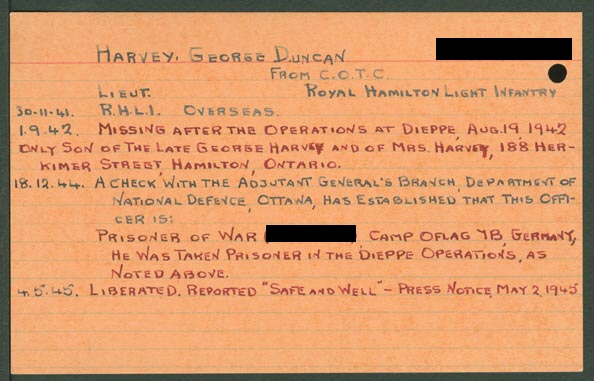 HARVEY, GEORGE DUNCAN
FROM C.O.T.C.
LIEUT. ROYAL HAMILTON LIGHT INFANTRY
30-11-41. R.H.L.I. OVERSEAS.
1.9.42. MISSING AFTER THE OPERATIONS AT DIEPPE, AUG.19, 1942
ONLY SON OF THE LATE GEORGE HARVEY AND OF MRS. HARVEY, 188 HER-
KIMER STREET, HAMILTON, ONTARIO.
18.12.44. A CHECK WITH THE ADJUTANT GENERAL'S BRANCH, DEPARTMENT OF
NATIONAL DEFENCE, OTTAWA, HAS ESTABLISHED THAT THIS OFFI-
CER IS:
PRISONER OF WAR CAMP OFLAG 7B, GERMANY,
HE WAS TAKEN PRISONER IN THE DIEPPE OPERATIONS, AS
NOTED ABOVE.
4.5.45. LIBERATED. REPORTED "SAFE AND WELL" - PRESS NOTICE, MAY 2, 1945